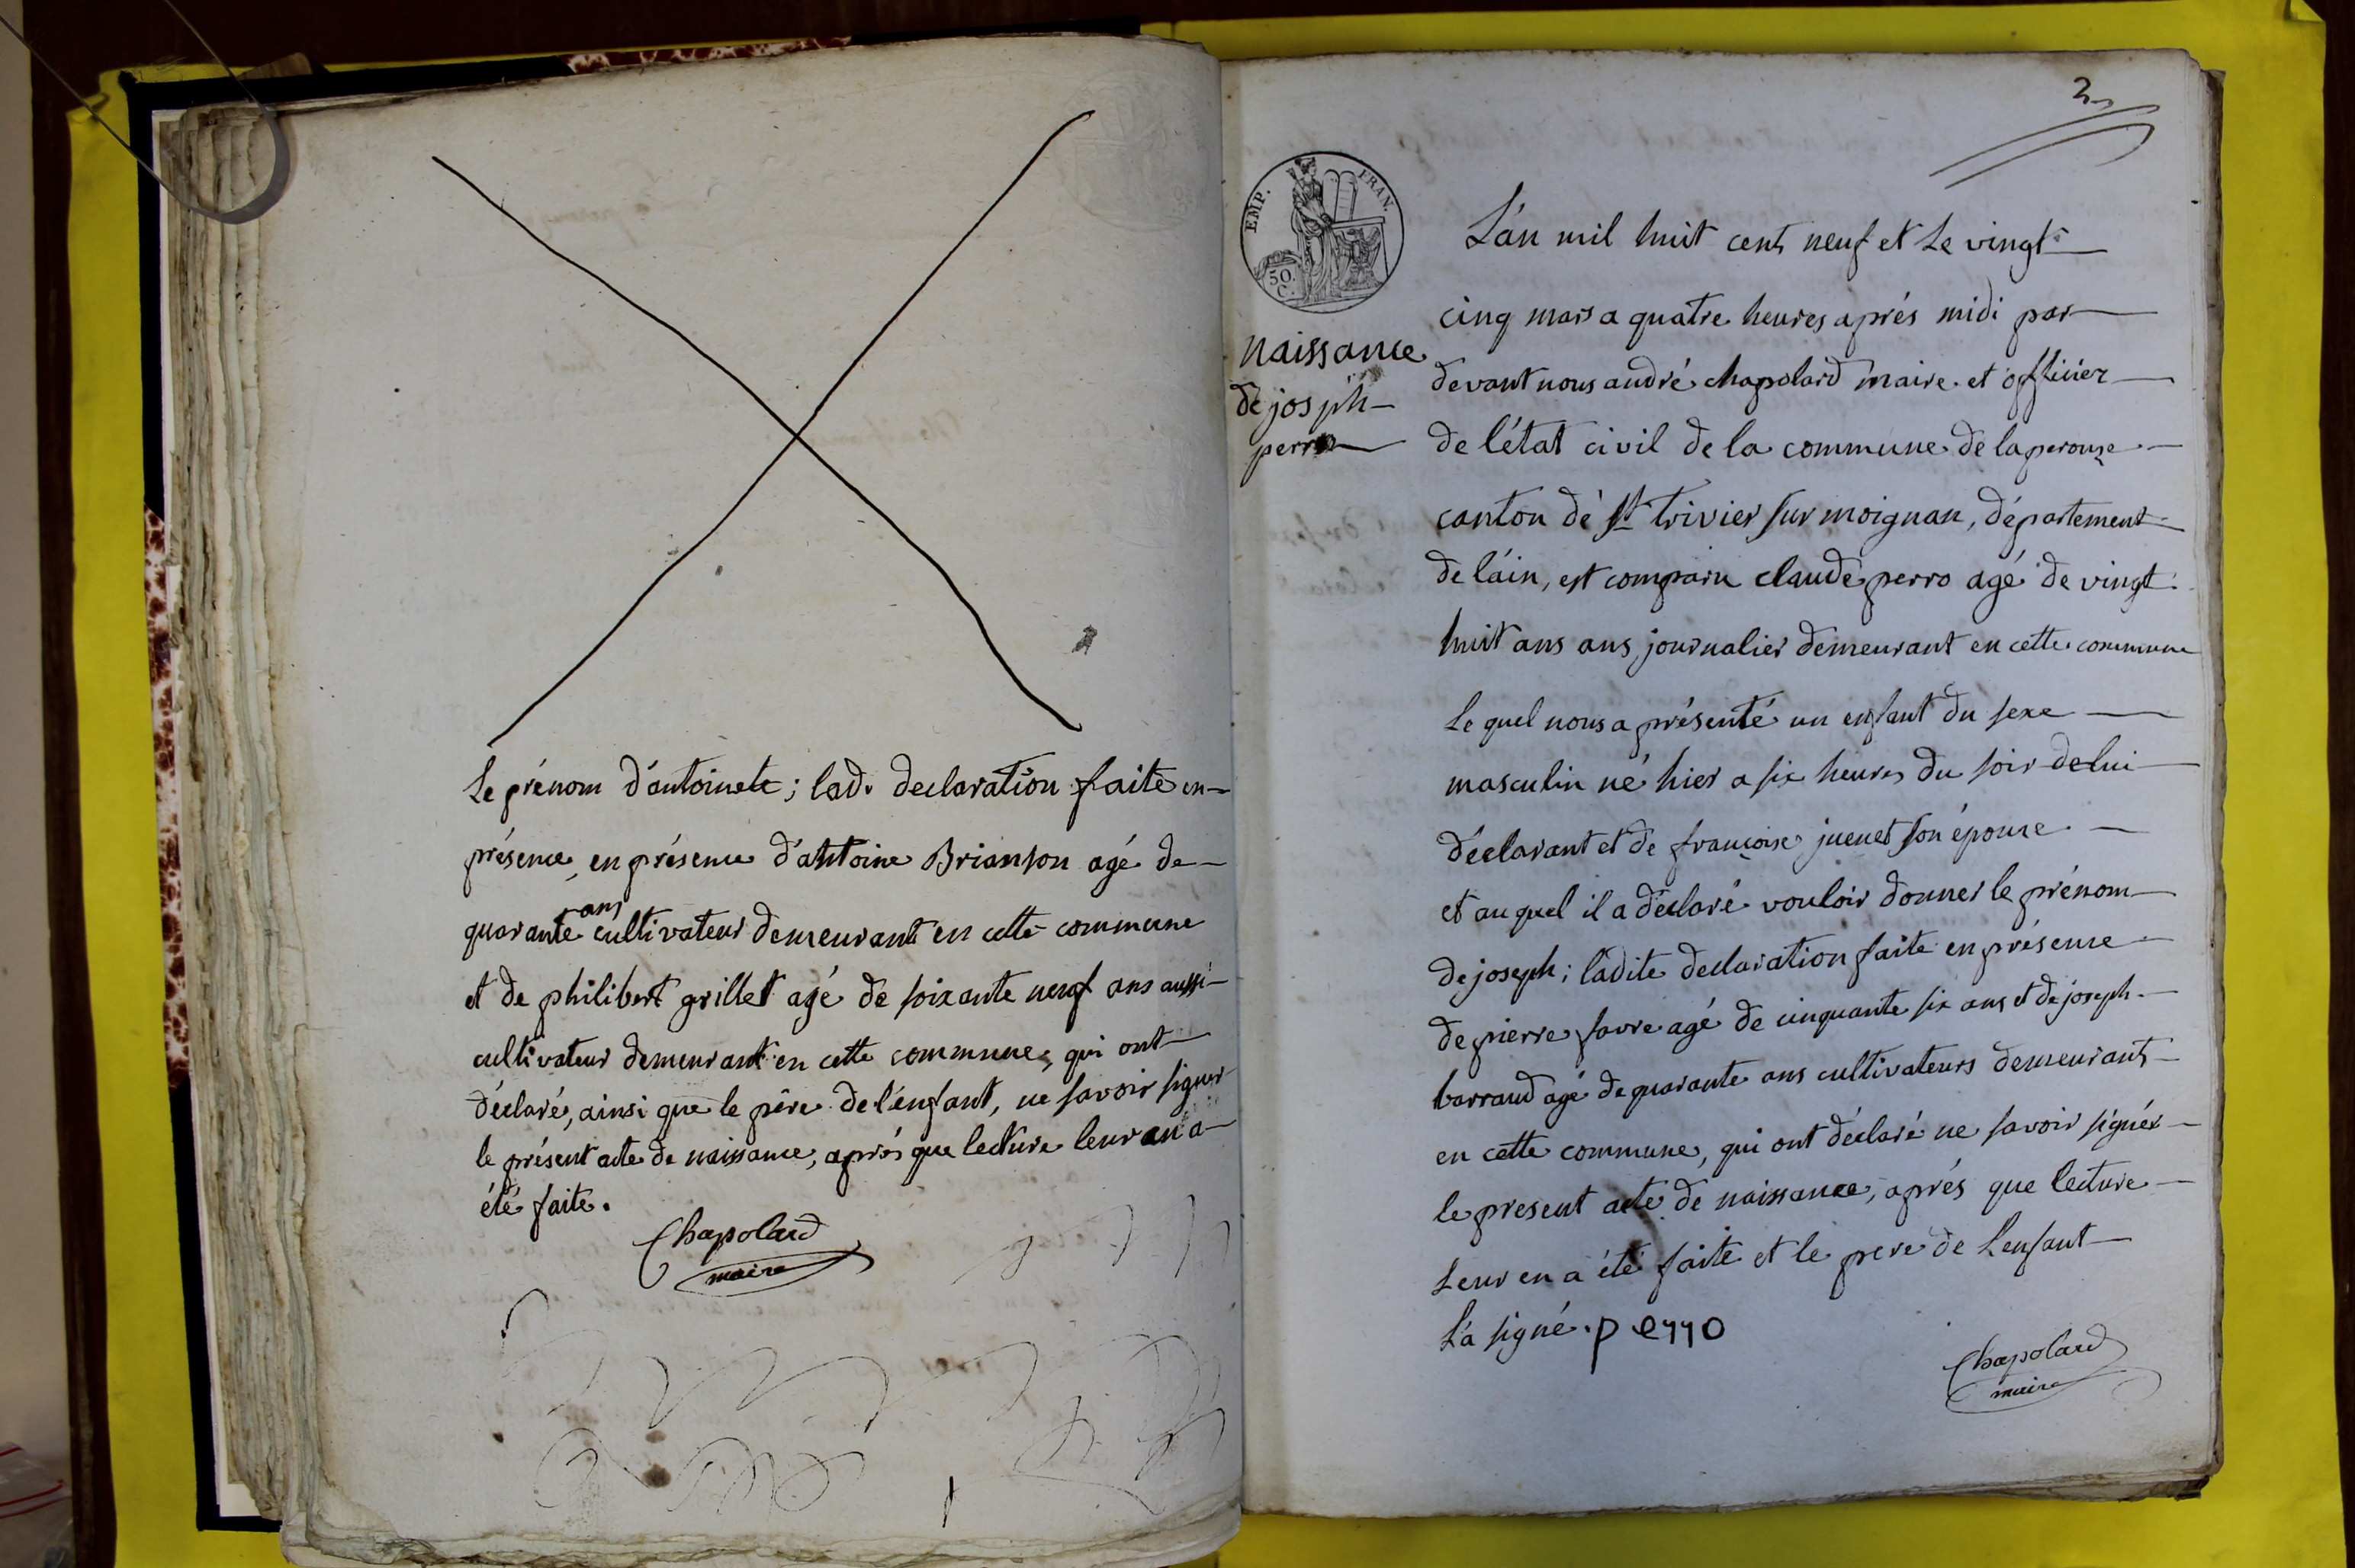 Le prénom d'antoinete; lad. declaration faite en
présence, en présence d'antoine Brianson agé de
ans
quarante cultivateur demeurant en cette commune
et de philibert grillet agé de soixante neuf ans aussi
cultivateur demeurant en cette commune, qui ont
déclaré, ainsi que le père de l'enfant, ne savoir signer
le présent acte de naissance, après que lecture leur en a
été faite.
Chapolard
maire
2
EMP. FRAN.
50
C.
naissance
de josph
perro
L'an mil huit cent neuf et le vingt
cinq mars a quatre heures après midi par
devant nous andré chapolard maire et officier
de l'état civil de la commune de laperouze
canton de St trivier sur moignan, département
de l'ain, est comparu claude perro agé de vingt
huit ans ans journalier demeurant en cette commune
Le quel nous a présenté un enfant du sexe
masculin né hier a six heures du soir de lui
déclarant et de françoise juenet son épouse
et auquel il a déclaré vouloir donner le prénom
de joseph; ladite declaration faite en présence
de pierre favre agé de cinquante six ans et de joseph
barraud agé de quarante ans cultivateurs demeurant
en cette commune, qui ont déclaré ne savoir signér
le present acte de naissance, après que lecture
Leur en a été faite et le pere de L'enfant
L'a signé. perro
Chapolard
maire